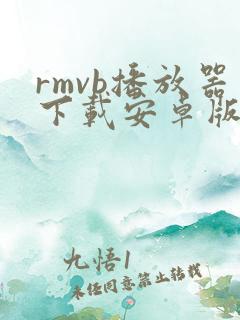 rmvb播放器
下载安卓版
九悟1
未经同意禁止转载